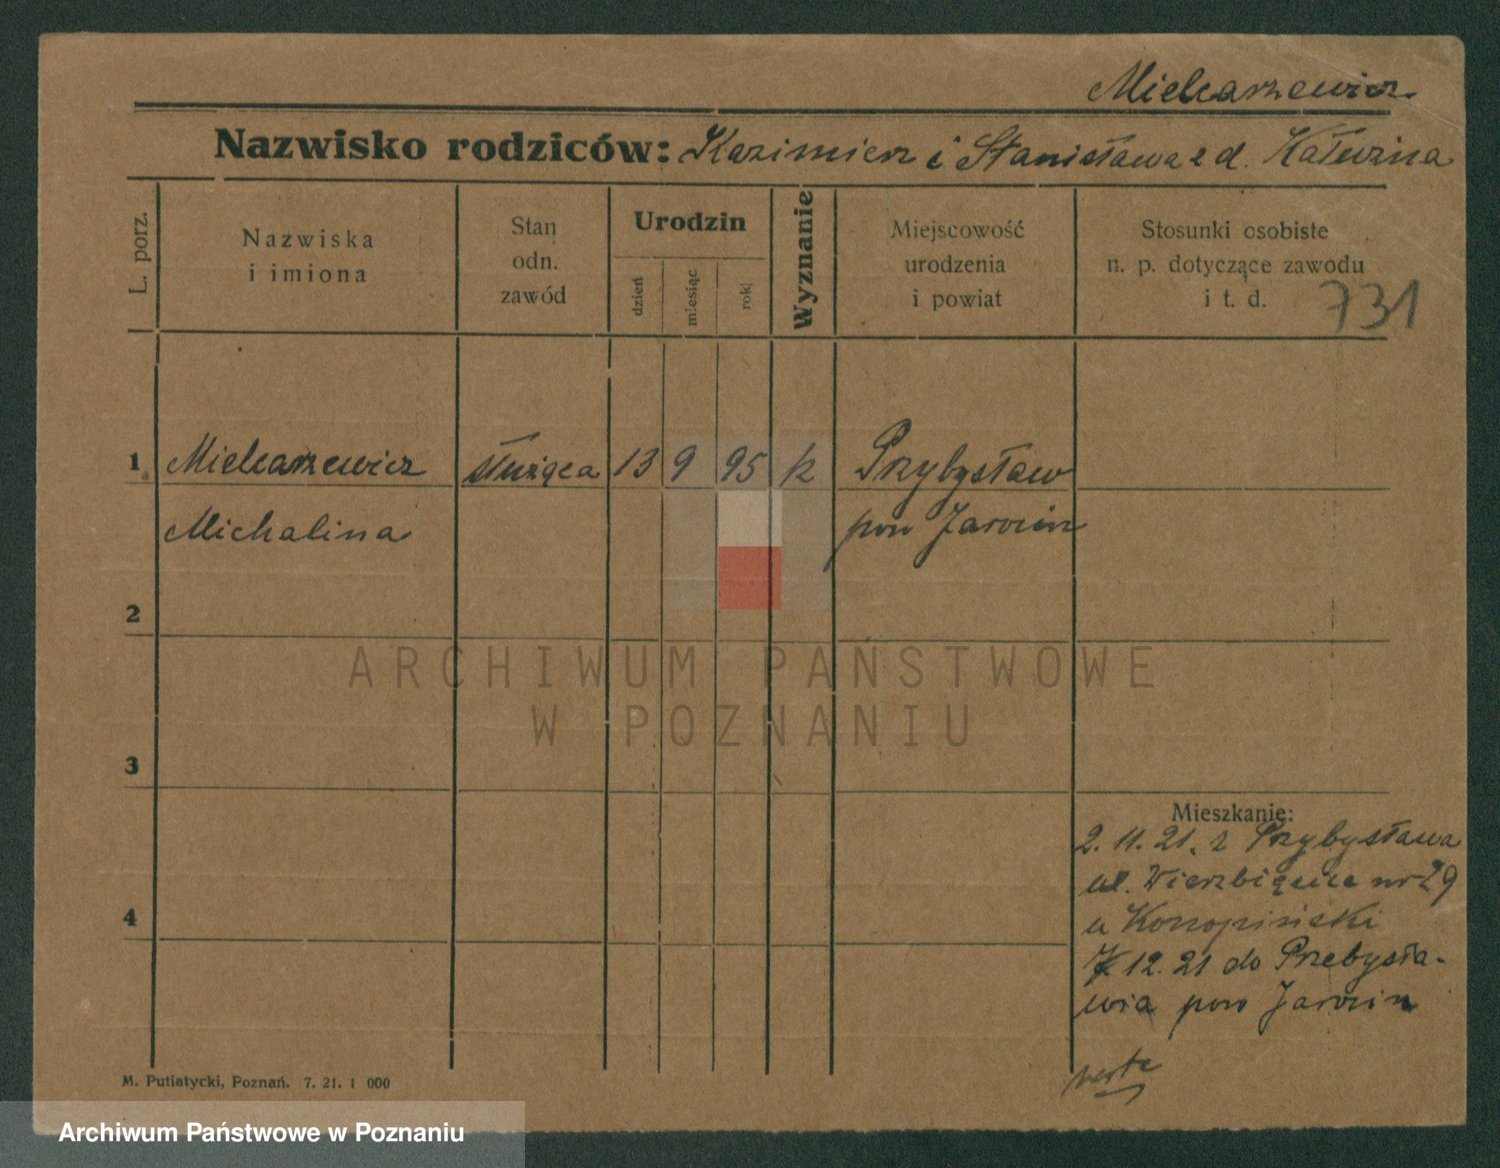 Mielcarzewicz
Nazwisko rodziców: Kazimierz i Stanisława z d.
L. porz.
Nazwiska
i imiona
Stan
odn.
zawód
Urodzin
dzień
miesiąc
rok
Wyznanie
Miejscowość
urodzenia
i powiat
Stosunki osobiste
n. p. dotyczące zawodu
i t. d.
731
1 Mielcarzewicz służąca 13 9 95 k Przybysław
Michalina pow Jarocin
2
ARCHIWUM PAŃSTWOWE
W POZNANIU
3
Mieszkanie:
2. 11. 21. z Przybysława
ul. Wierzbięcice nr 29
u Konopiński
4
12. 21 do Przebysła-
wia pow Jarocin
verte
M. Putiatycki, Poznań. 7. 21. 1 000
Archiwum Państwowe w Poznaniu